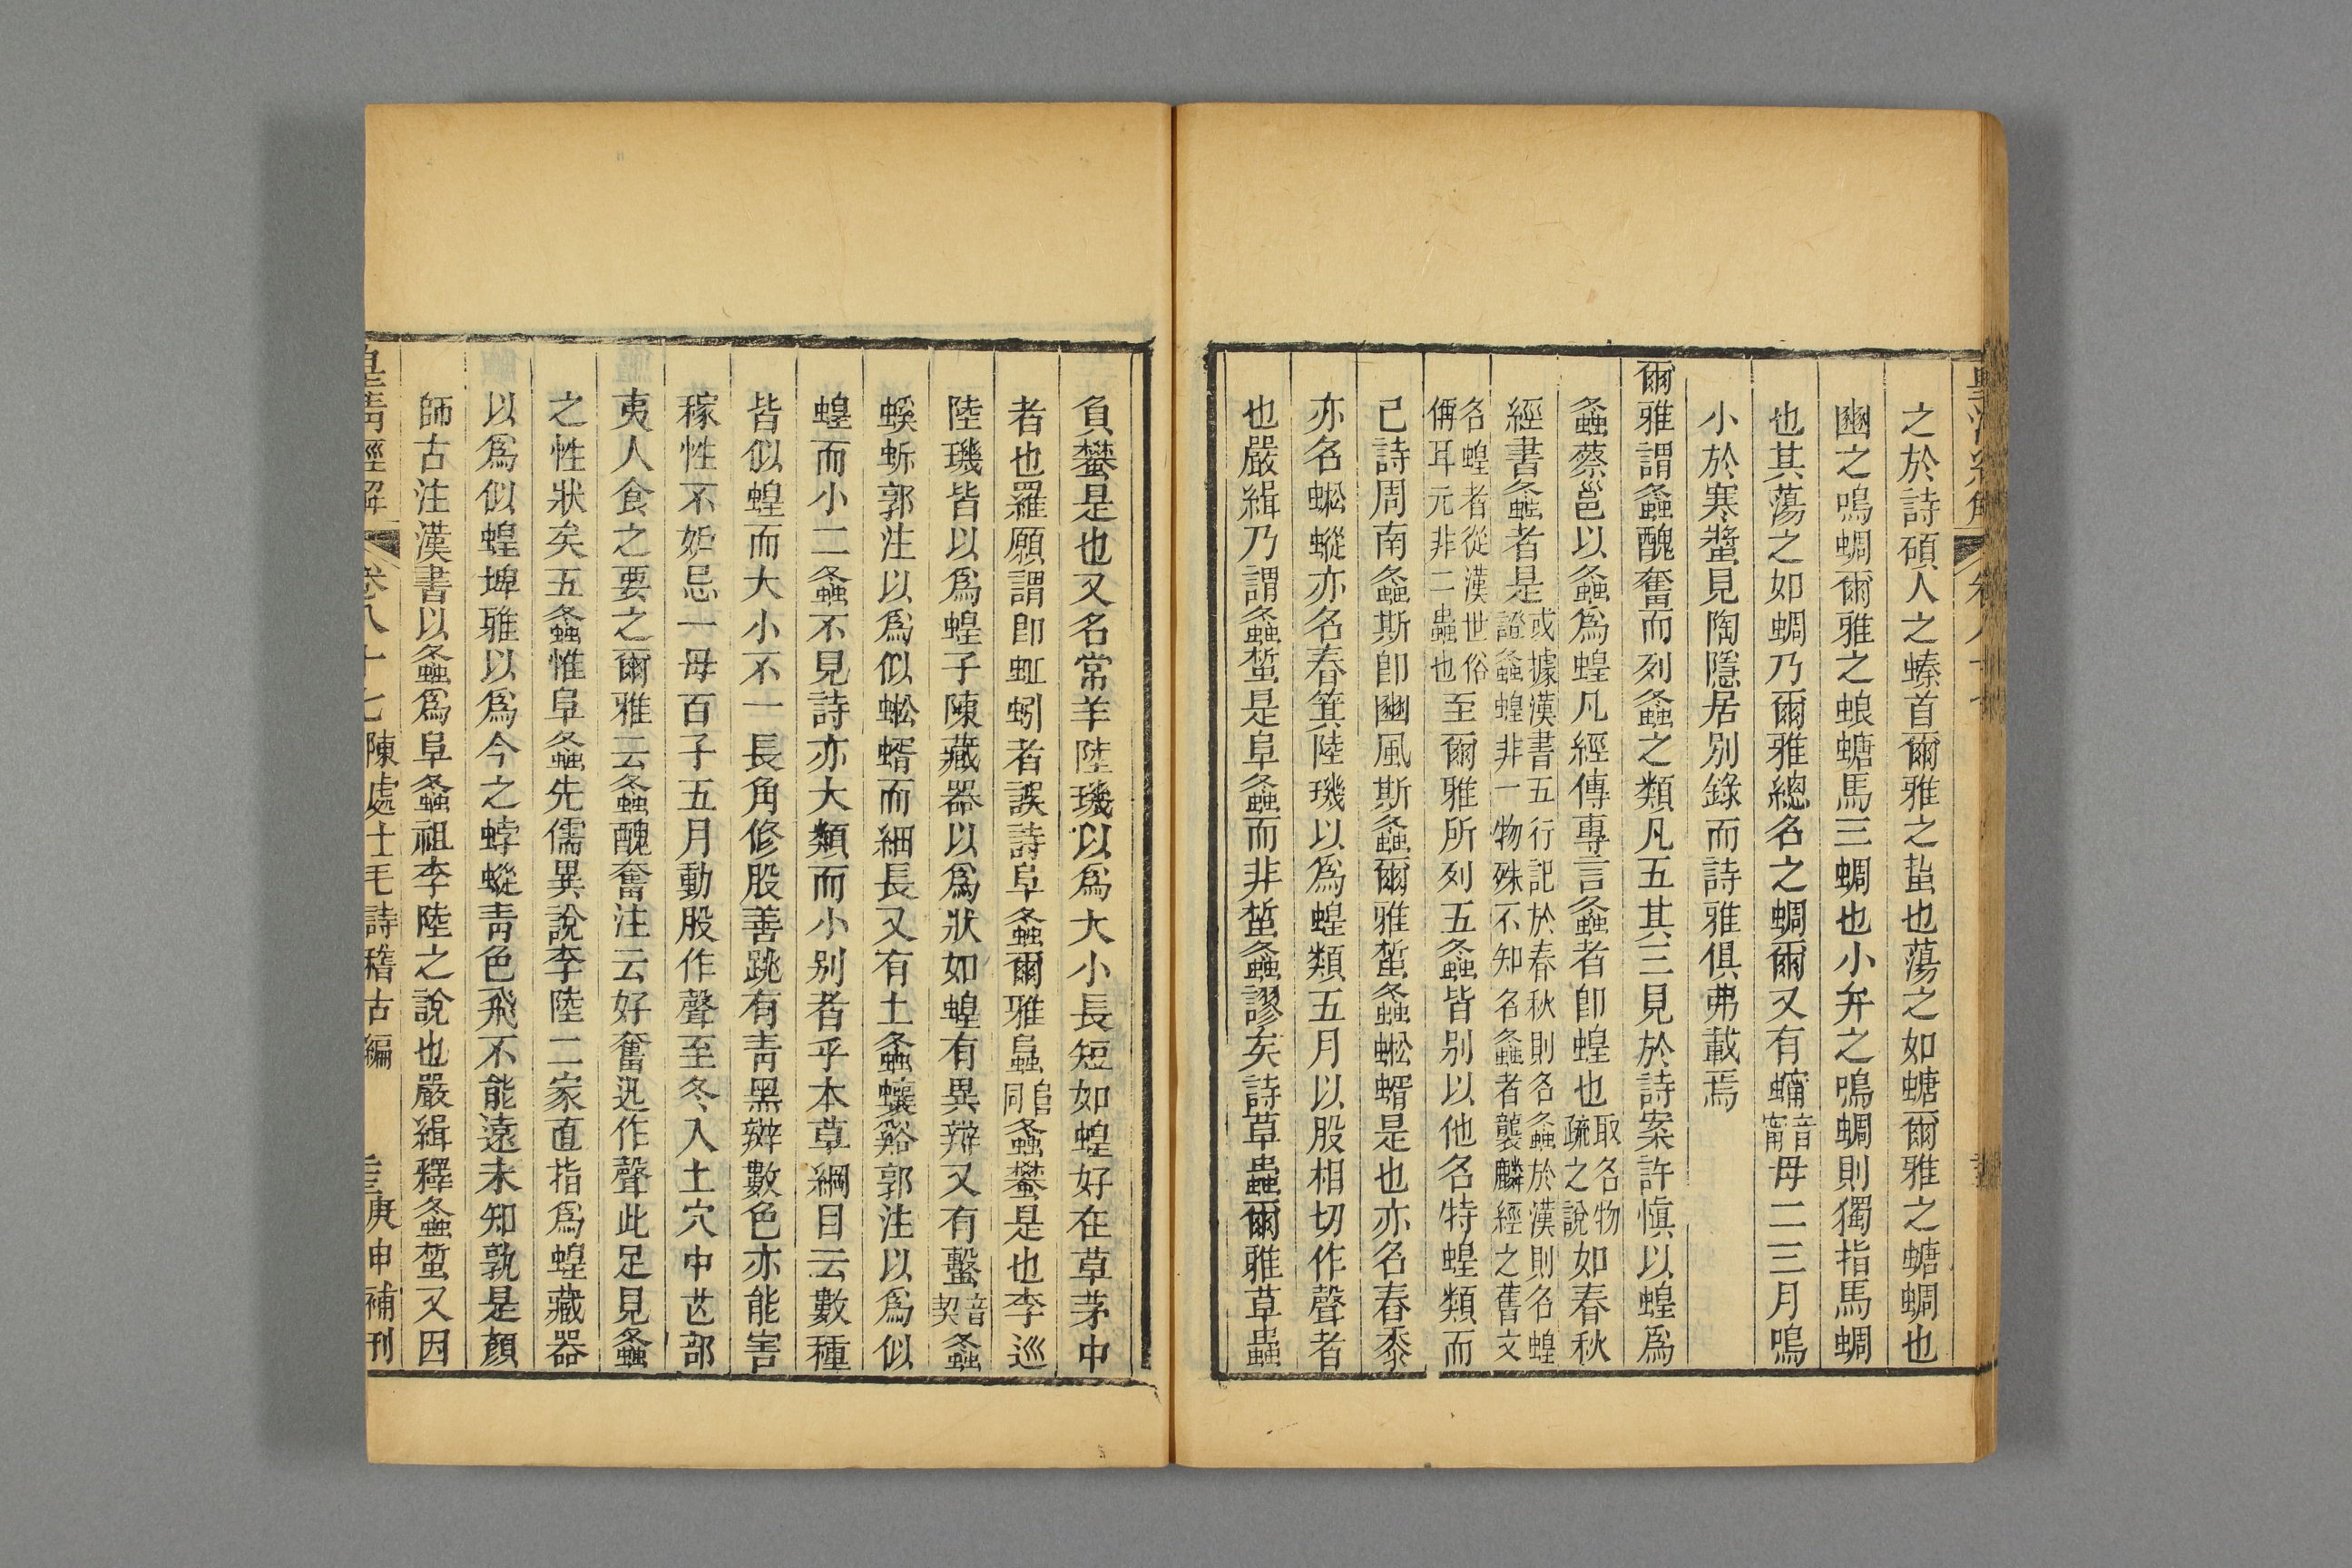 之於詩碩人之螓首爾雅之蚻也蕩之如螗爾雅之螗蜩也
豳之鳴蜩爾雅之蜋螗馬三蜩也小弁之鳴蜩則獨指馬蜩
也其蕩之如蜩乃爾雅總名之蜩爾又有䗖音甯母二三月鳴
小於寒螿見陶隱居別錄而詩雅俱弗載焉
爾雅謂螽醜奮而列螽之類凡五其三見於詩案許慎以蝗爲
螽蔡邕以螽爲蝗凡經傳專言螽者卽蝗也取名物疏之說如春秋
經書螽者是或據漢書五行記於春秋則名螽於漢則名蝗證螽蝗非一物殊不知名螽者襲麟經之舊文
名蝗者從漢世俗偁耳元非二蟲也至爾雅所列五螽皆別以他名特蝗類而
已詩周南螽斯卽豳風斯螽爾雅蜤螽蜙蝑是也亦名舂黍
亦名蜙蝑亦名舂箕陸璣以爲蝗類五月以股相切作聲者
也嚴緝乃謂螽蜤是阜螽而非蜤螽謬矣詩草蟲爾雅草蟲
負蠜是也又名常羊陸璣以爲大小長短如蝗好在草茅中
者也羅願謂卽蚯蚓者誤詩阜螽爾雅𧒂𨸏同螽蠜是也李巡
陸璣皆以爲蝗子陳藏器以爲狀如蝗有異辯又有蟿音契螽
螇蚸郭注以爲似蜙蝑而細長又有土螽蠰谿郭注以爲似
蝗而小二螽不見詩亦大類而小別者乎本草綱目云數種
皆似蝗而大小不一長角修股善跳有靑黑辬數色亦能害
稼性不妒忌一母百子五月動股作聲至冬入土穴中芒部
夷人食之要之爾雅云螽醜奮注云好奮迅作聲此足見螽
之性狀矣五螽惟阜螽先儒異說李陸二家直指爲蝗藏器
以爲似蝗埤雅以爲今之蜉蝑靑色飛不能遠未知孰是顏
師古注漢書以螽爲阜螽祖李陸之說也嚴緝釋螽蜤又因
皇清經解 卷八十七 陳處士毛詩稽古編 庚申補刊